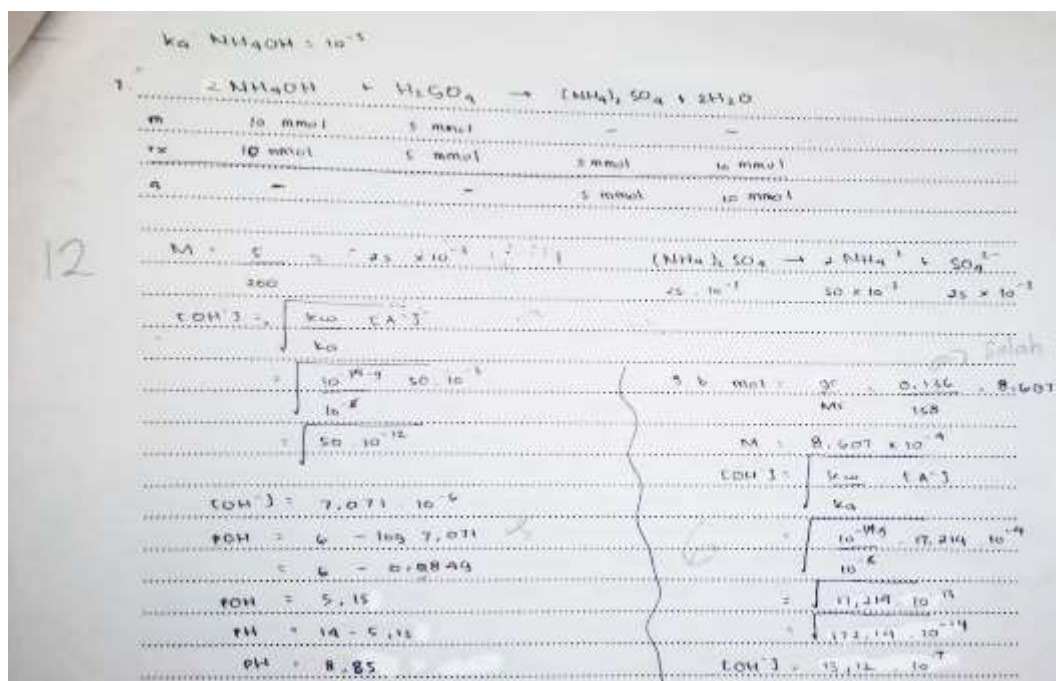 ka NH4OH = 10⁻⁵
2 NH4OH + H2SO4 → (NH4)2 SO4 + 2H2O
m 10 mmol 5 mmol - -
rx 10 mmol 5 mmol 5 mmol 10 mmol
a - - 5 mmol 10 mmol
12
M = 5 / 200 = 25 × 10⁻³
(NH4)2 SO4 → 2 NH4⁺ + SO4²⁻
25 . 10⁻³ 50 × 10⁻³ 25 × 10⁻³
[OH⁻] = √ kw / ka [A⁻]
= √ 50 . 10⁻¹²
[OH⁻] = 7,071 . 10⁻⁶
POH = 6 - log 7,071
= 6 - 0,849
POH = 5,15
PH = 14 - 5,15
PH = 8.85
Salah
mol = gr / Mr = 0.136 / 158 = 8.607
M = 8.607 × 10⁻⁴
[OH⁻] = √ kw / ka [A⁻]
= √ 17,214 . 10⁻¹³
= √ 172,14 . 10⁻¹⁴
[OH⁻] = 13,12 . 10⁻⁷